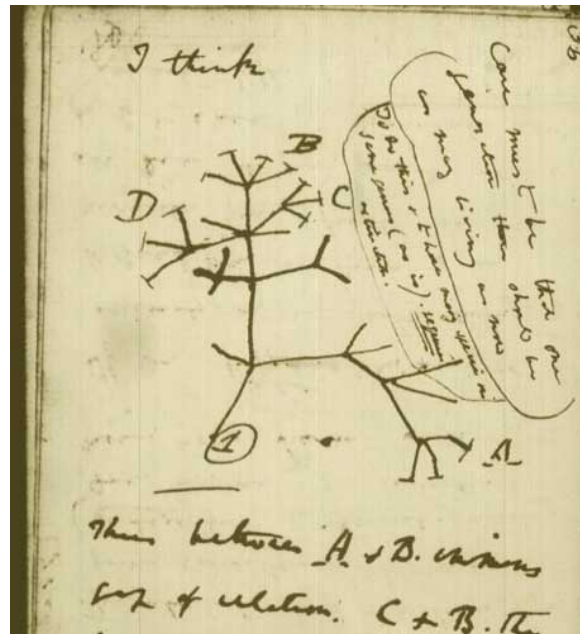 I think
B
C
D
A
1
Case must be that one
generation then should be
as many living as now
To do this & to have many species in
same genus (as is). requires
extinction.
Thus between A & B. immense
gap of relation. C & B. The